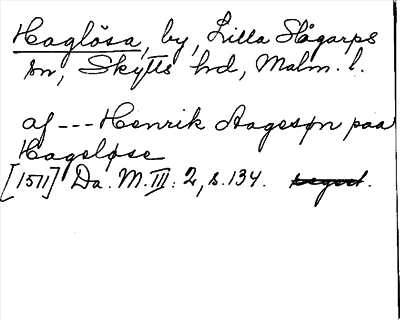 Haglösa, by, Lilla Slågarps
sn, Skytts hd, Malm. l.
af --- Henrik Aagesøn paa
Hageløse
[1511] Da. M. III: 2, s. 134.